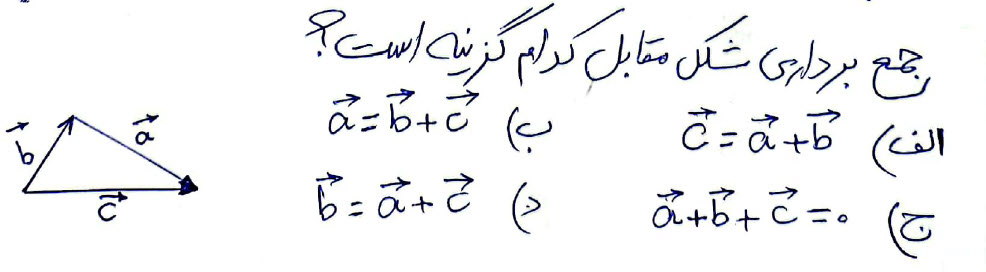 جمع برداری شکل مقابل کدام گزینه است؟
الف) c⃗ = a⃗ + b⃗    ب) a⃗ = b⃗ + c⃗
ج) a⃗ + b⃗ + c⃗ = ۰    د) b⃗ = a⃗ + c⃗
b⃗ a⃗
c⃗